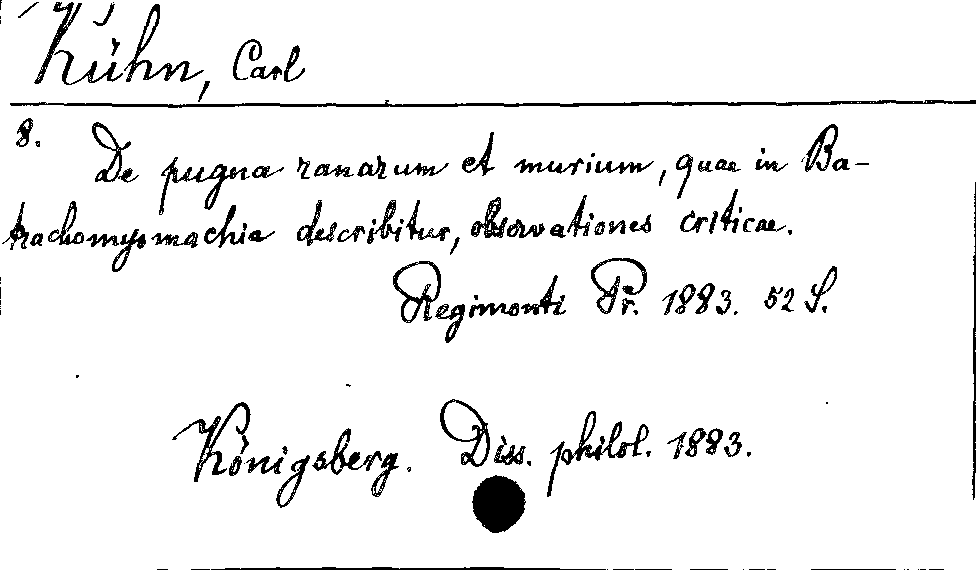 Kühn, Carl
8.
De pugna ranarum et murium, quae in Ba-
trachomyomachia describitur, observationes criticae.
Regimonti Pr. 1883. 52 S.
Königsberg. Diss. philol. 1883.